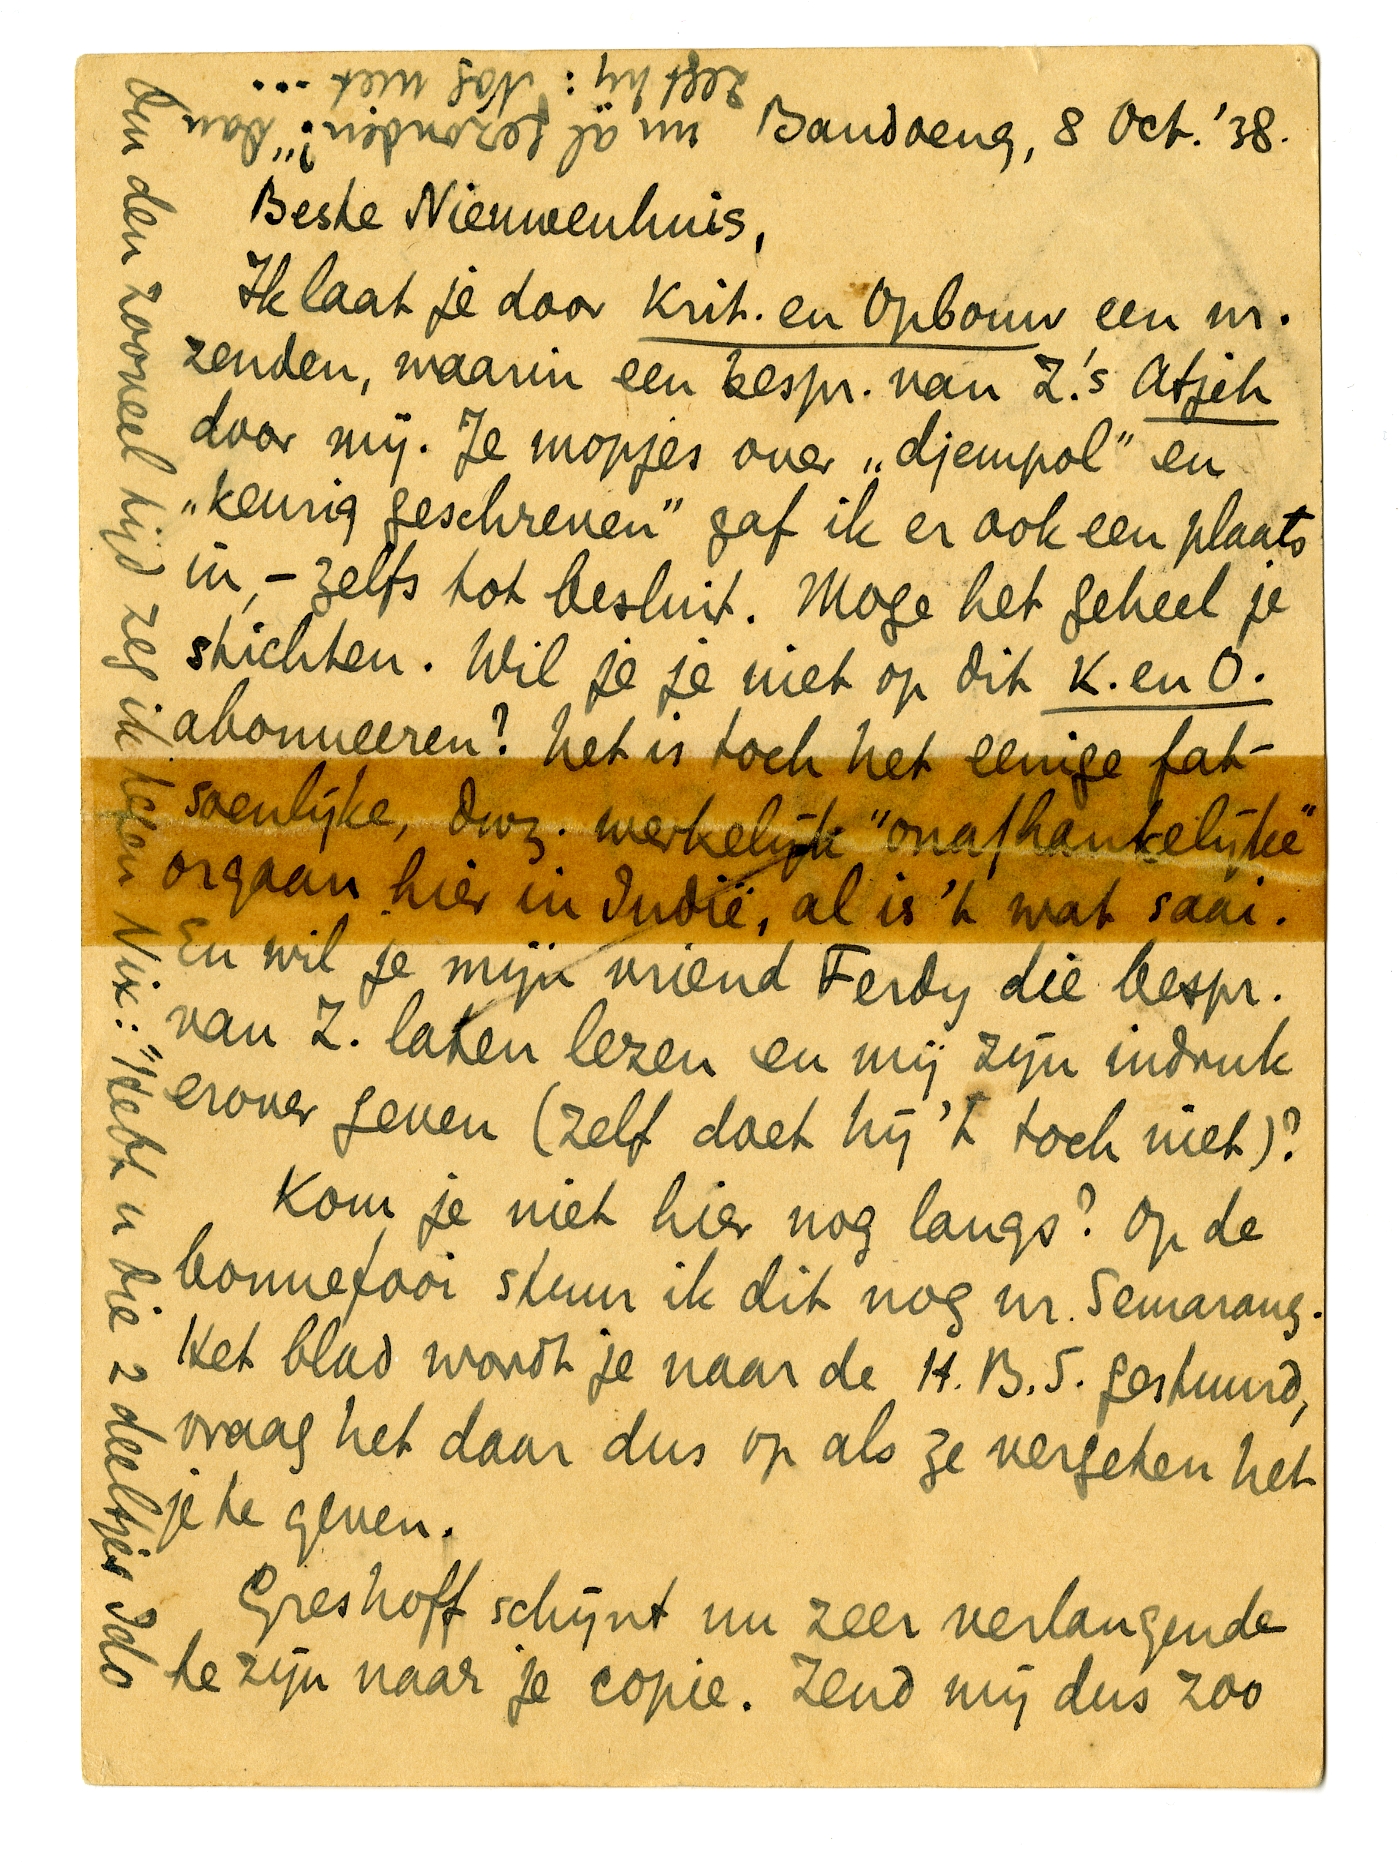 Bandoeng, 8 Oct. '38.
Beste Nieuwenhuis,
Ik laat je door Krit. en Opbouw een nr.
zenden, waarin een bespr. van Z.'s Atjeh
door mij. Je mopjes over „djempol” en
„keurig geschreven” gaf ik er ook een plaats
in, – zelfs tot besluit. Moge het geheel je
stichten. Wil je je niet op dit K. en O.
abonneeren? Het is toch het eenige fat-
soenlijke, dwz. werkelijk "onafhankelijke"
orgaan hier in Indië, al is 't wat saai.
En wil je mijn vriend Ferdy die bespr.
van Z. laten lezen en mij zijn indruk
erover geven (zelf doet hij 't toch niet)?
Kom je niet hier nog langs? Op de
bonnefooi stuur ik dit nog nr. Semarang.
Het blad wordt je naar de H.B.S. gestuurd,
vraag het daar dus op als ze vergeten het
je te geven.
Greshoff schijnt nu zeer verlangende
te zijn naar je copie. Zend mij dus zoo
Om den zooveel tijd zeg ik tegen Nix: "Hebt u die 2 deeltjes Ido
nu al gezonden?" Dan
zegt hij: Nog niet ...